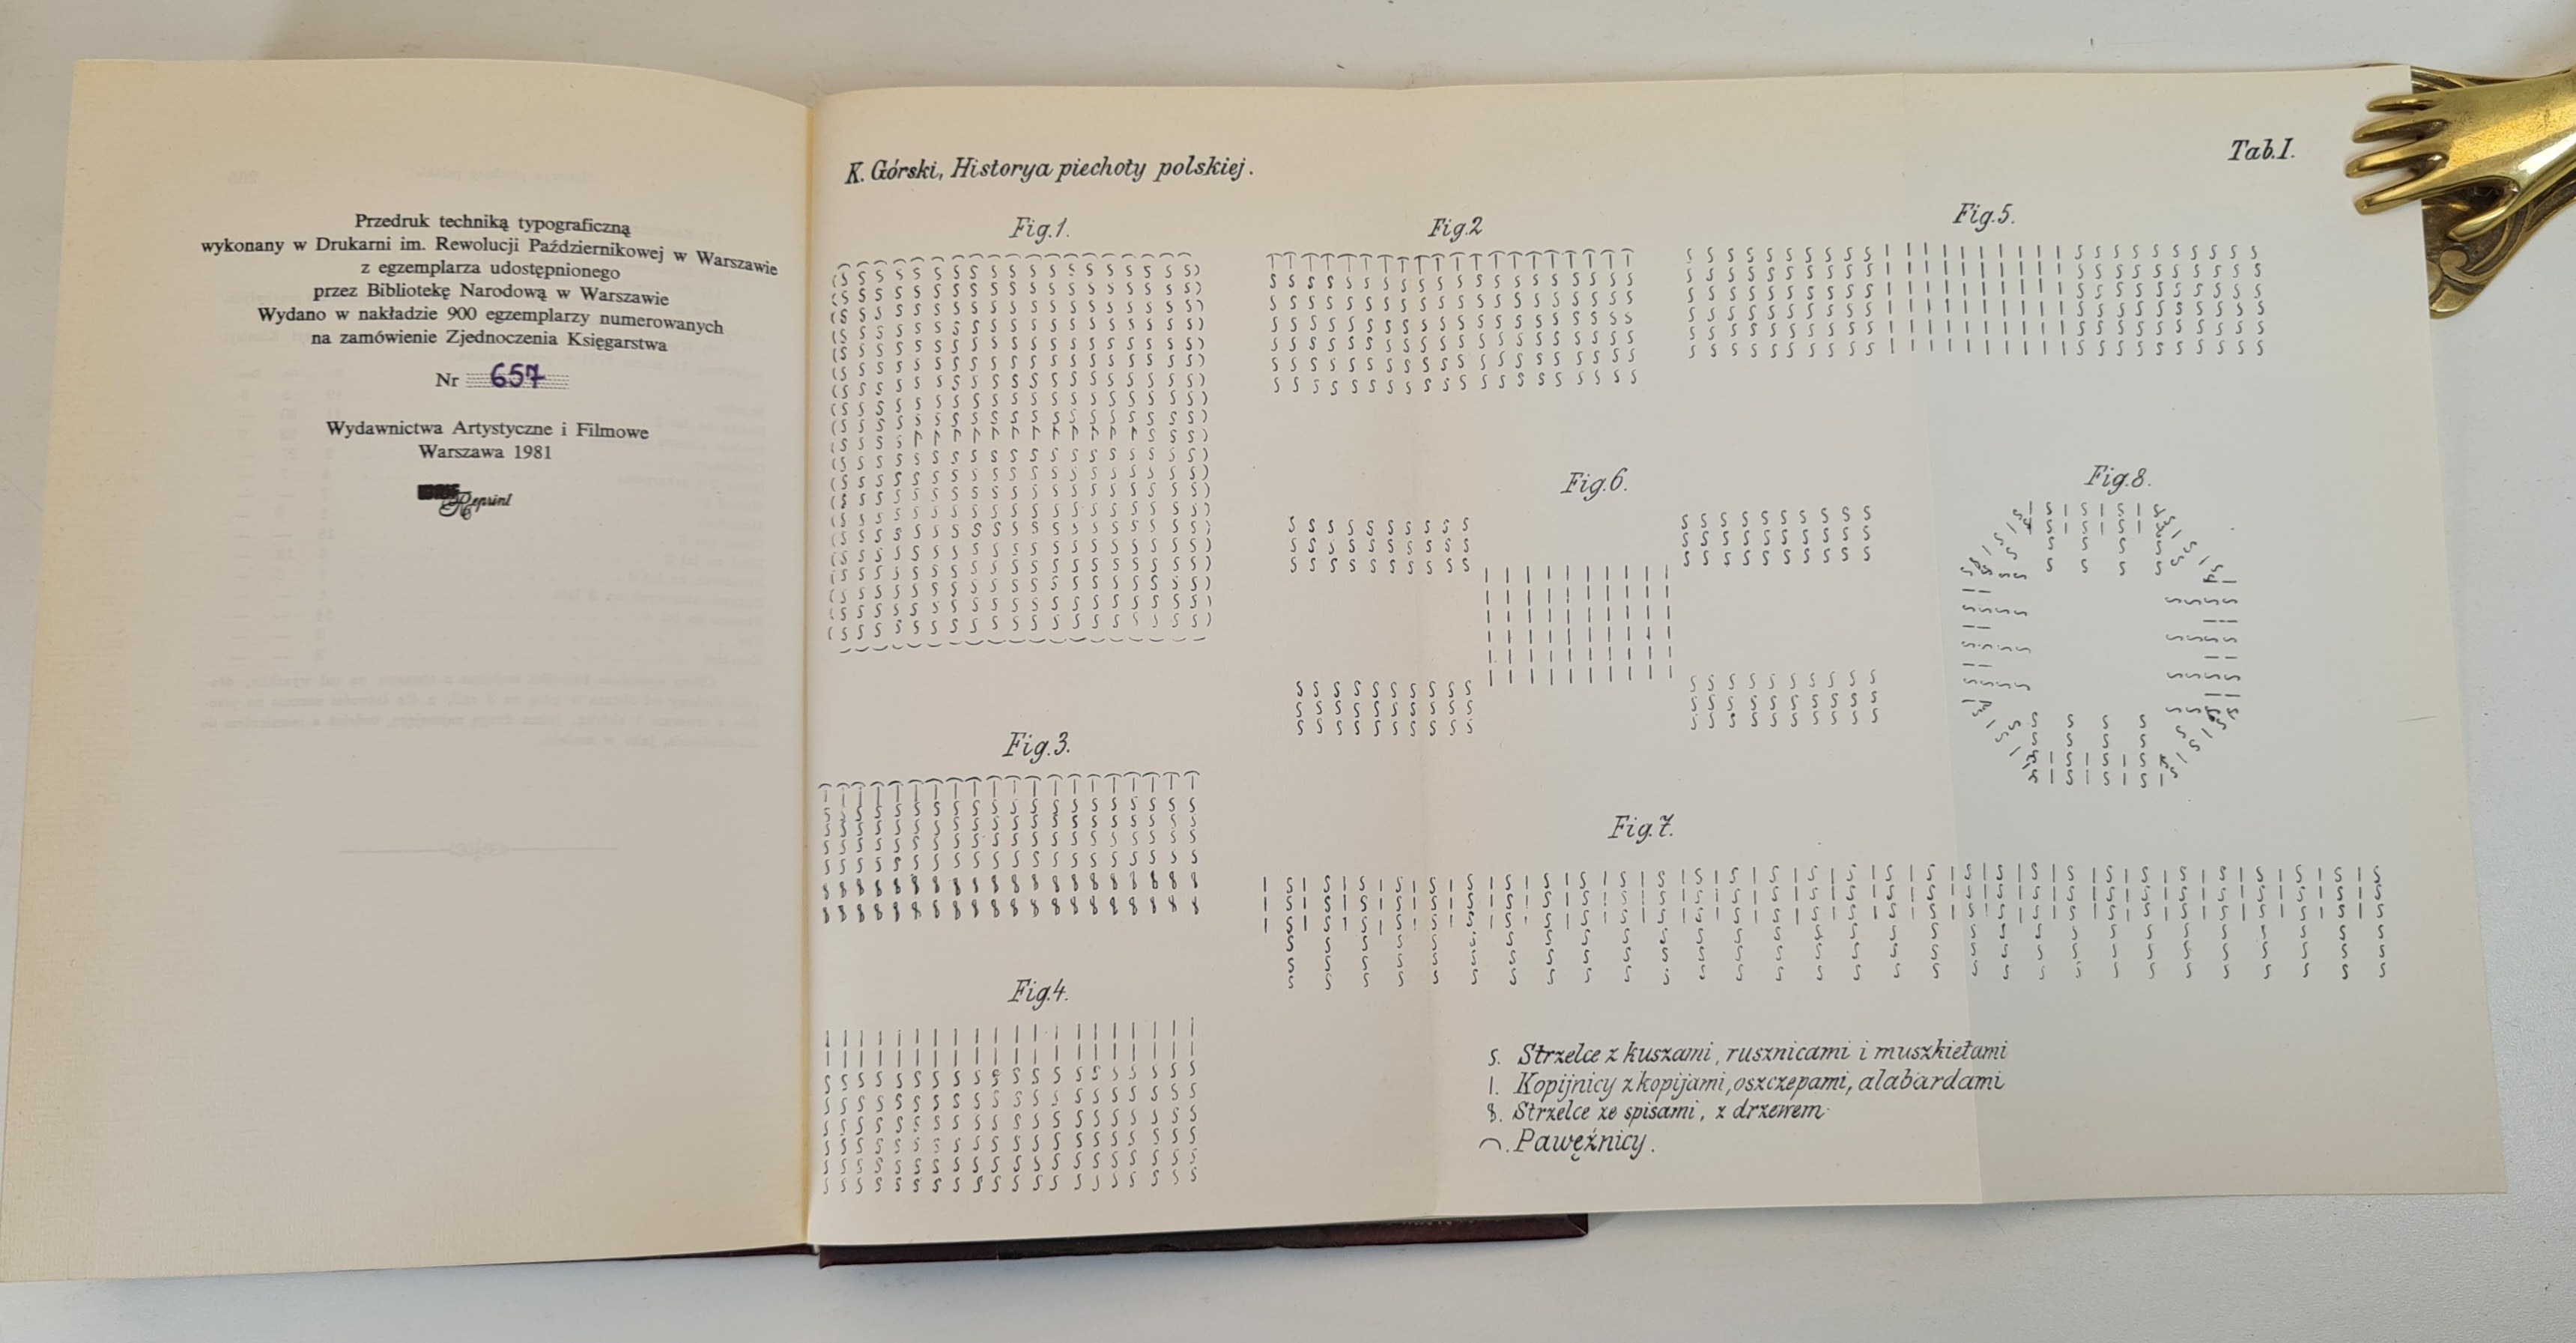 Przedruk techniką typograficzną
wykonany w Drukarni im. Rewolucji Październikowej w Warszawie
z egzemplarza udostępnionego
przez Bibliotekę Narodową w Warszawie
Wydano w nakładzie 900 egzemplarzy numerowanych
na zamówienie Zjednoczenia Księgarstwa
Nr 657
Wydawnictwa Artystyczne i Filmowe
Warszawa 1981
Reprint
K. Górski, Historya piechoty polskiej.
Tab. I.
Fig. 1.
Fig. 2
Fig. 5.
Fig. 6.
Fig. 8.
Fig. 3.
Fig. 7.
Fig. 4.
S. Strzelce z kuszami, rusznicami i muszkietami
I. Kopijnicy z kopijami, oszczepami, alabardami
8. Strzelce ze spisami, z drzewem
⌒. Pawężnicy.